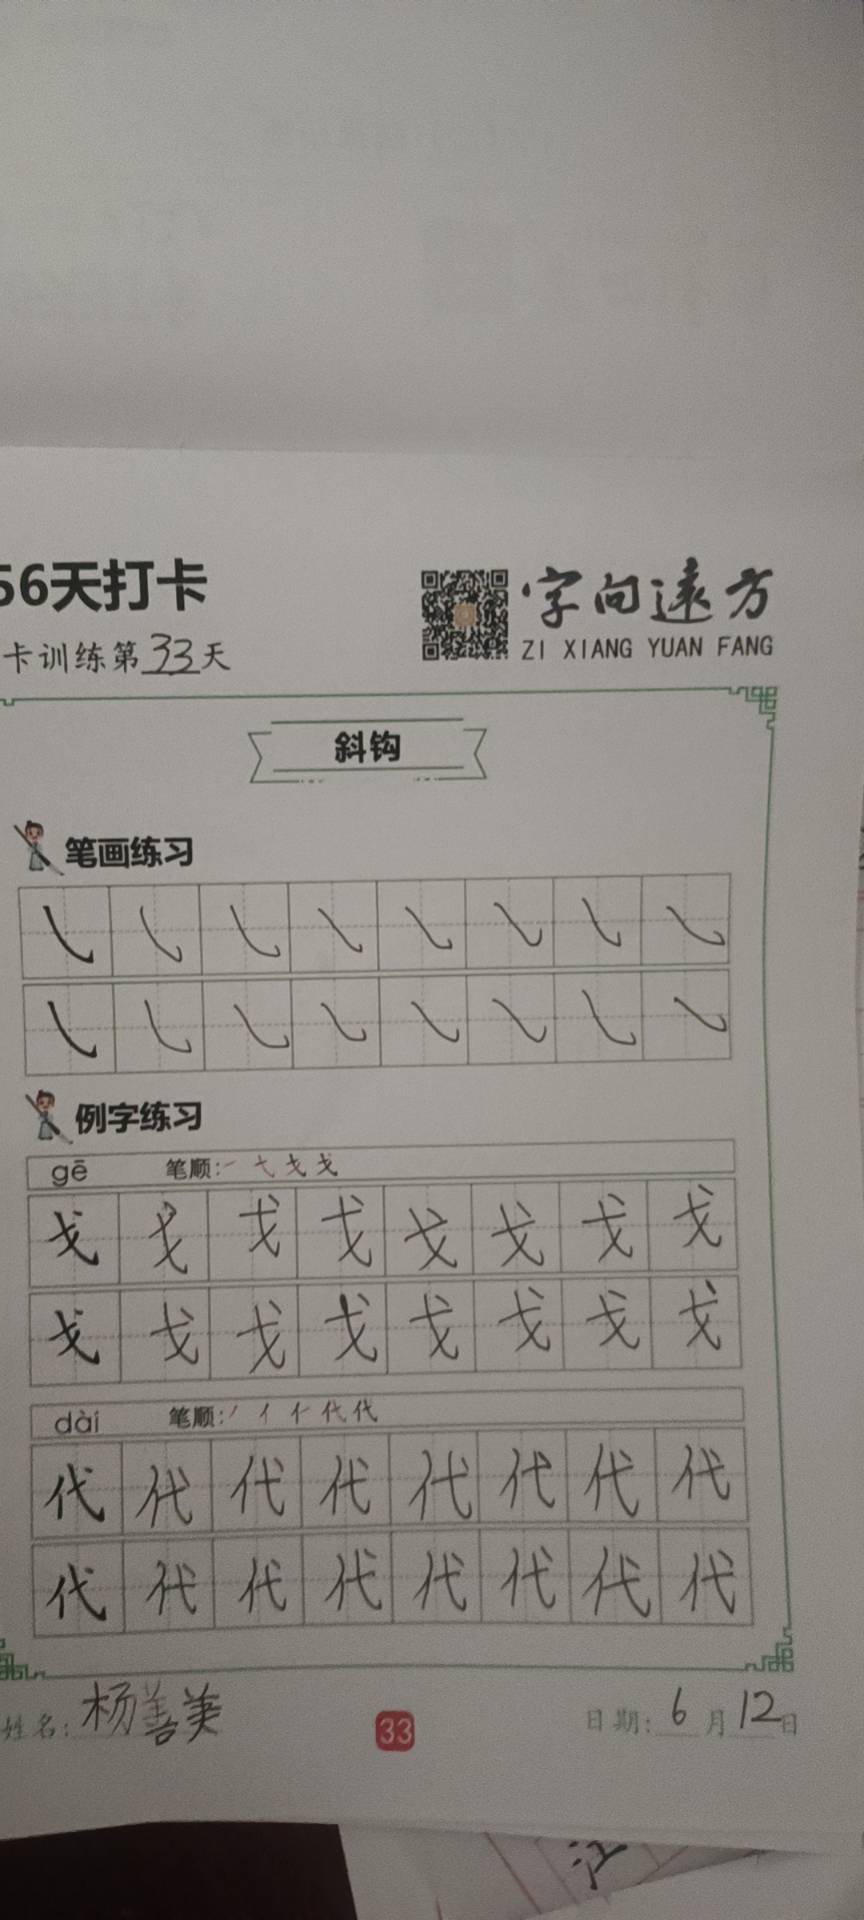 56天打卡
字向远方
ZI XIANG YUAN FANG
卡训练第33天
斜钩
笔画练习
例字练习
gē 笔顺:
戈戈戈戈戈戈戈戈
戈戈戈戈戈戈戈戈
dài 笔顺:
代代代代代代代代
代代代代代代代代
姓名:杨善美
33
日期:6月12日